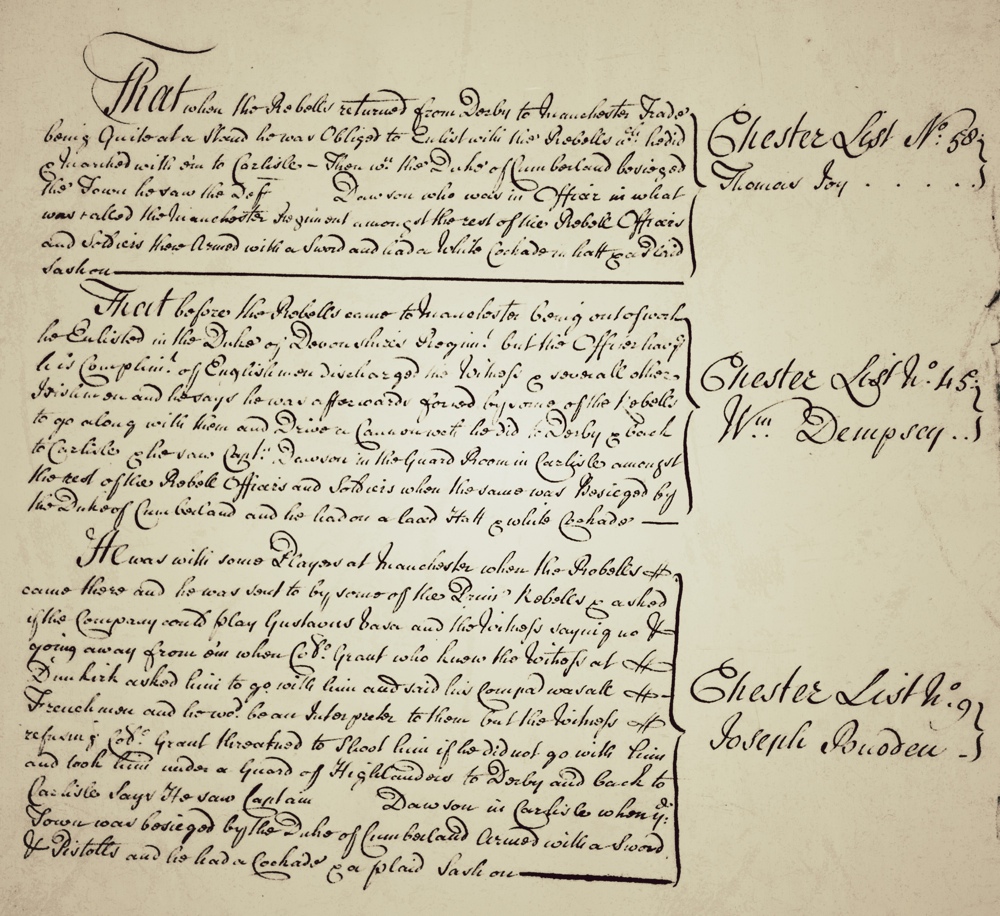 That when the Rebells returned from Derby to Manchester Trade
being Quite at a Stand he was Obliged to Enlist with the Rebells wch. he did
& Marched with em to Carlisle – Then wn. the Duke of Cumberland besieged
the Town he saw the Def Dawson who was in Officer in what
was called the Manchester Regiment amongst the rest of the Rebell Officers
and Soldiers there Armed with a Sword and had a White Cockade in hatt & a plaid
Sash on
Chester List No. 58
Thomas Joy . . . . . .
That before the Rebells came to Manchester being out of work
he Enlisted in the Duke of Devonshire's Regimt. but the Officer havg.
his Complimt. of Englishmen discharged the Witness & severall other
Irishmen and he says he was afterwards forced by some of the Rebells
to go along with them and Drive a Cannon wch he did to Derby & back
to Carlisle & he saw Capt. Dawson in the Guard Room in Carlisle amongst
the rest of the Rebell Officers and Soldiers when the same was Besieged by
the Duke of Cumberland and he had on a laced Hatt & white Cockade
Chester List No. 45
Wm Dempsey . .
He was with some Players at Manchester when the Rebells
came there and he was sent to by some of the Rebells & asked
if the Company could play Gustavus Vasa and the Witness saying no &
going away from em when Colo. Grant who knew the Witness at
Dunkirk asked him to go with him and said his Compa. was all
Frenchmen and he wod. be an Interpreter to them but the Witness
refusing Colo. Grant threatned to Shoot him if he did not go with him
and took him under a Guard of Highlanders to Derby and back to
Carlisle Says He saw Captain Dawson in Carlisle when ye.
Town was besieged by the Duke of Cumberland Armed with a Sword
& Pistolls and he had a Cockade & a plaid Sash on
Chester List No. 9
Joseph